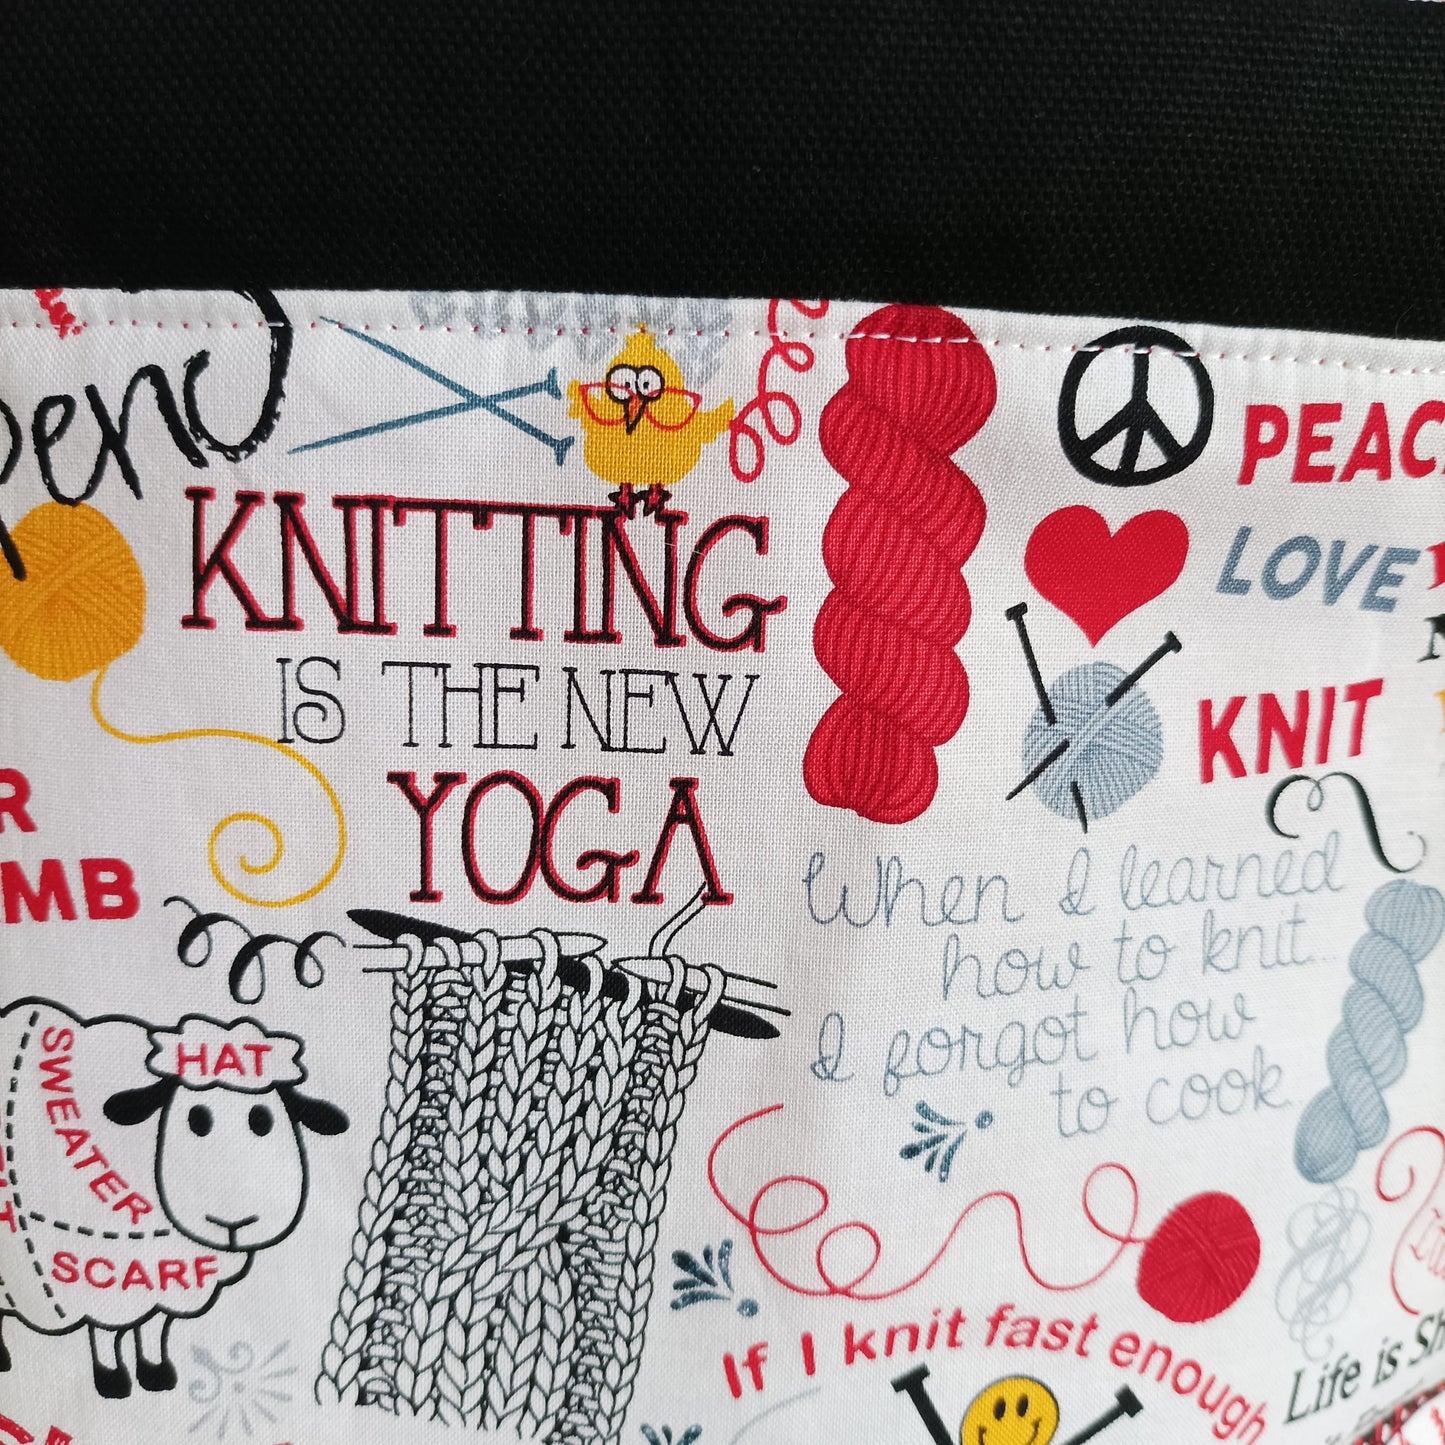 KNITTING
IS THE NEW
YOGA
PEAC
LOVE
KNIT
When I learned
how to knit...
I forgot how
to cook.
R
MB
HAT
SWEATER
SCARF
If I knit fast enough
Life is Sh